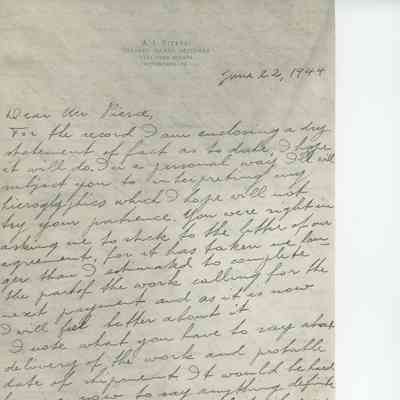 June 22, 1944
Dear Mr Pierce,
For the record I am enclosing a dry
statement of fact as to date, I hope
it will do. In a personal way I'll
subject you to interpreting my
hieroglyphics which I hope will not
try your patience. You were right in
asking me to stick to the letter of our
agreement, for it has taken me lon
ger than I estimated to complete
the part of the work calling for the
next payment and as it is now
I will feel better about it
I note what you have to say about
delivery of the work and probable
date of shipment. It would be hard
now to say anything definite